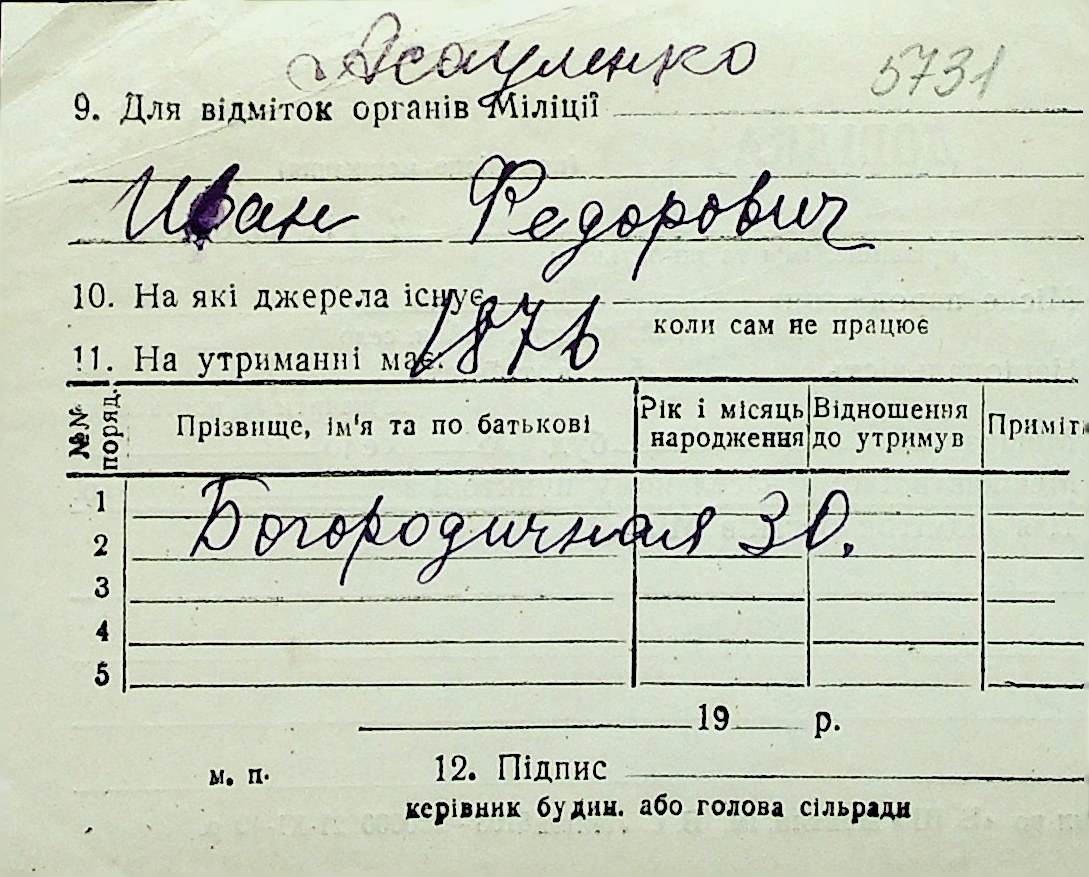 Асауленко 5731
9. Для відміток органів Міліції
Иван Федорович
10. На які джерела існує
коли сам не працює
1876
11. На утриманні має:
№№ поряд. Прізвище, ім'я та по батькові Рік і місяць народження Відношення до утримув Приміт.
1
Богородичная 30.
2
3
4
5
19 р.
м. п. 12. Підпис
керівник будин. або голова сільради